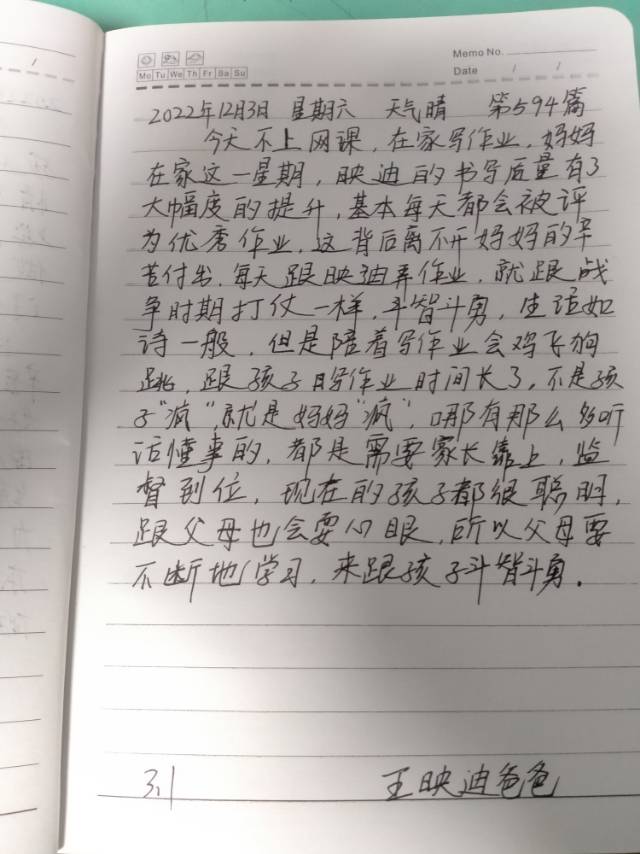 Memo No.
Mo Tu We Th Fr Sa Su
Date / /
2022年12月3日 星期六 天气晴 第594篇
今天不上网课,在家写作业,妈妈
在家这一星期,映迪的书写质量有了
大幅度的提升,基本每天都会被评
为优秀作业,这背后离不开妈妈的辛
苦付出,每天跟映迪弄作业,就跟战
争时期打仗一样,斗智斗勇,生活如
诗一般,但是陪着写作业会鸡飞狗
跳,跟孩子写作业时间长了,不是孩
子"疯",就是妈妈"疯",哪有那么多听
话懂事的,都是需要家长靠上,监
督到位,现在的孩子都很聪明,
跟父母也会耍心眼,所以父母要
不断地学习,来跟孩子斗智斗勇.
3.1 王映迪爸爸